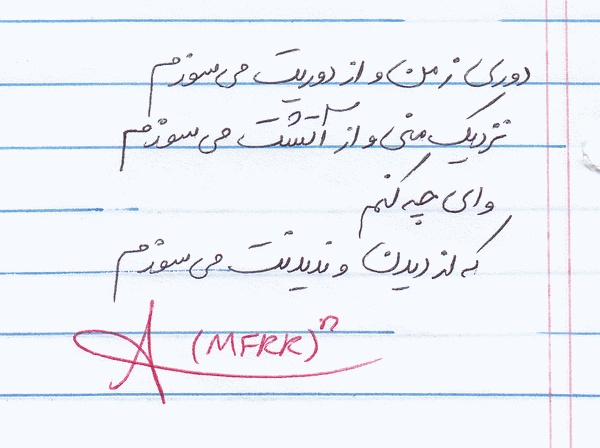 دوری ز من و از دوریت می سوزم
نزدیک منی و از آتشت می سوزم
وای چه کنم
که از دیدن و ندیدنت می سوزم
(MFRR)ⁿ